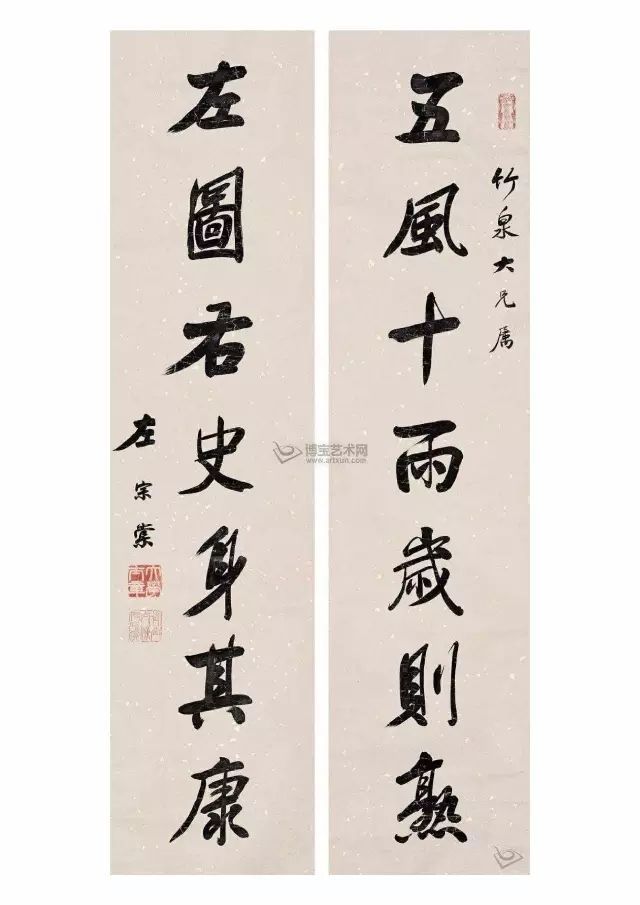 竹泉大兄属
五風十雨歲則熟
左圖右史身其康
左宗棠
博宝艺术网
www.artxun.com